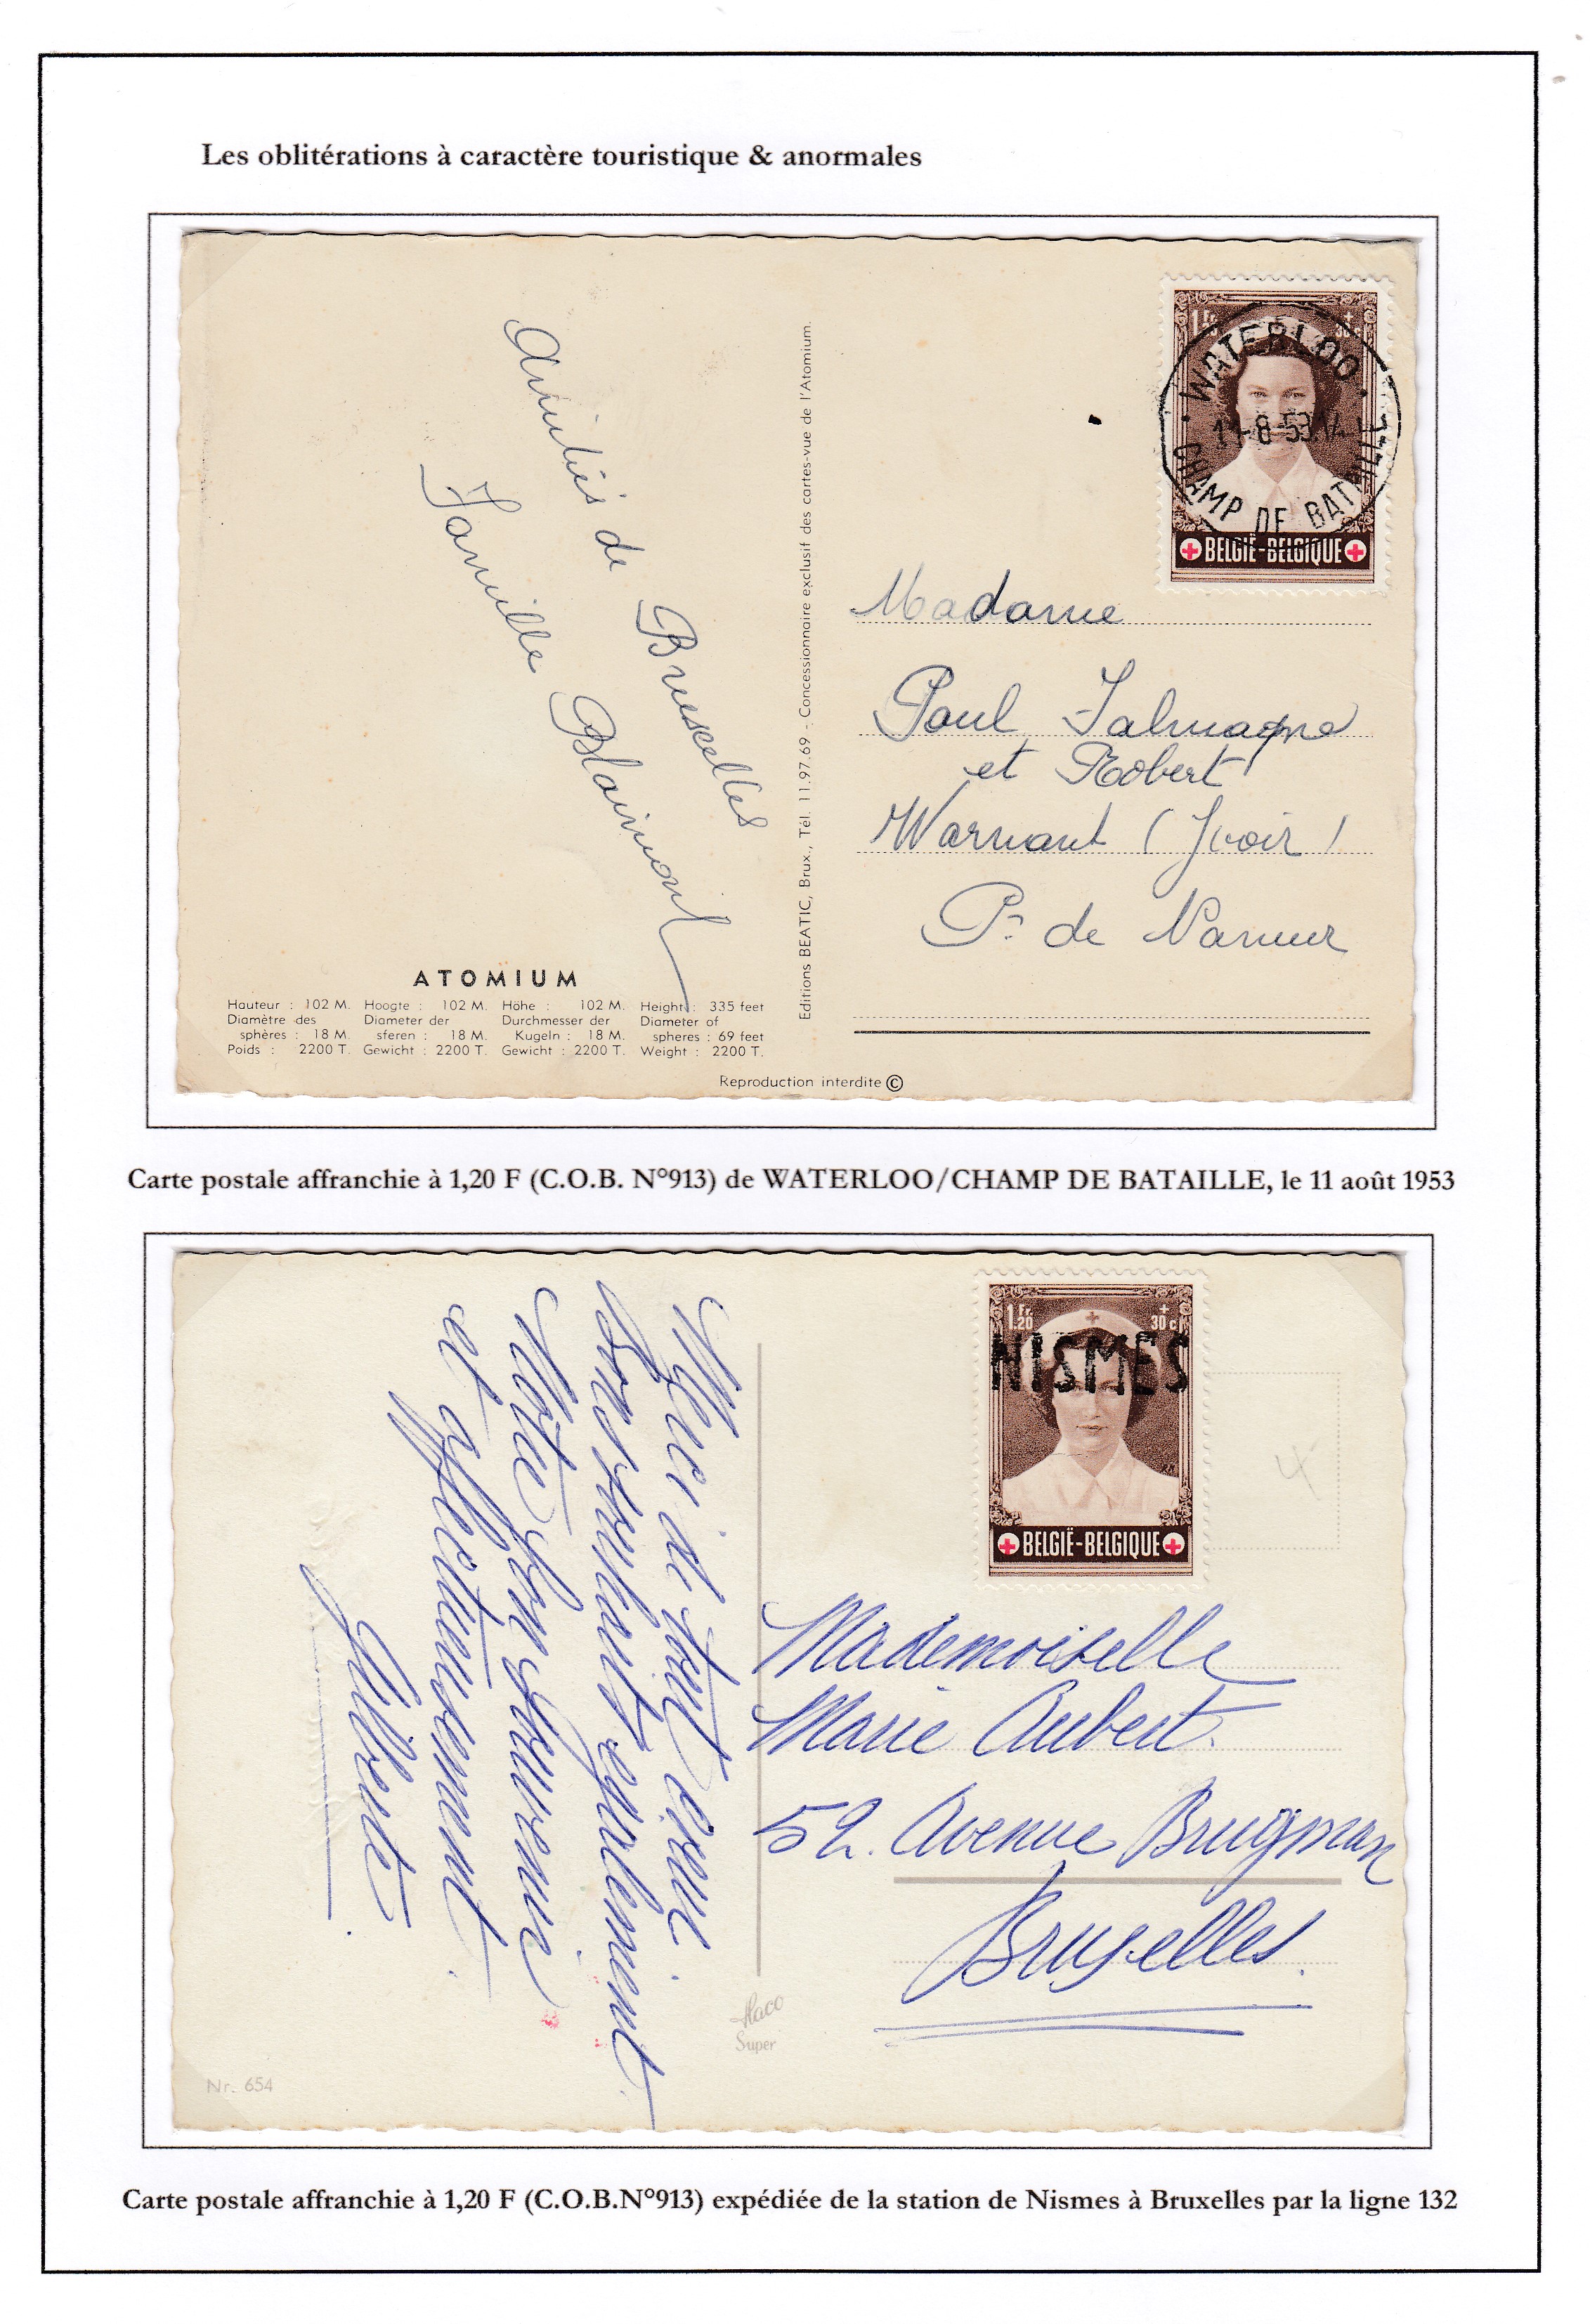 Les oblitérations à caractère touristique & anormales
1 Fr.
WATERLOO
11-8-53 14
CHAMP DE BATAILLE
BELGIË-BELGIQUE
Amitiés de Bruxelles
Famille Blaimont
Editions BEATIC, Brux., Tél. 11.97.69 - Concessionnaire exclusif des cartes-vue de l'Atomium.
Madame
Paul
et Robert
Warnant (Yvoir)
Pce de Namur
ATOMIUM
Hauteur : 102 M. Hoogte : 102 M. Höhe : 102 M. Height : 335 feet
Diamètre des Diameter der Durchmesser der Diameter of
sphères : 18 M. sferen : 18 M. Kugeln : 18 M. spheres : 69 feet
Poids : 2200 T. Gewicht : 2200 T. Gewicht : 2200 T. Weight : 2200 T.
Reproduction interdite ©
Carte postale affranchie à 1,20 F (C.O.B. N°913) de WATERLOO/CHAMP DE BATAILLE, le 11 août 1953
1 Fr. 20 + 30 c
NISMES
BELGIË-BELGIQUE
Merci de tout cœur.
Bons souhaits également.
Notre bon souvenir
et affectueusement
Mademoiselle
Marie Aubert.
52. Avenue Brugman
Bruxelles.
Haco
Super
Nr. 654
Carte postale affranchie à 1,20 F (C.O.B.N°913) expédiée de la station de Nismes à Bruxelles par la ligne 132